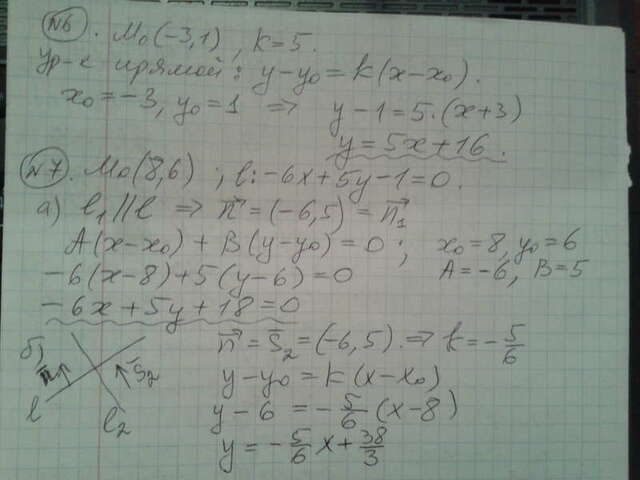 №6. M₀(-3,1), k=5.
Ур-е прямой: y-y₀=k(x-x₀).
x₀=-3, y₀=1 ⇒ y-1=5·(x+3)
y=5x+16.
№7. M₀(8,6); l: -6x+5y-1=0.
а) l₁∥l ⇒ n⃗=(-6,5)=n⃗₁
A(x-x₀)+B(y-y₀)=0; x₀=8, y₀=6
-6(x-8)+5(y-6)=0 A=-6, B=5
-6x+5y+18=0
б) n⃗=s̄₂=(-6,5).⇒ k=-5/6
n⃗ s̄₂ y-y₀=k(x-x₀)
l l₂ y-6=-5/6(x-8)
y=-5/6x+38/3